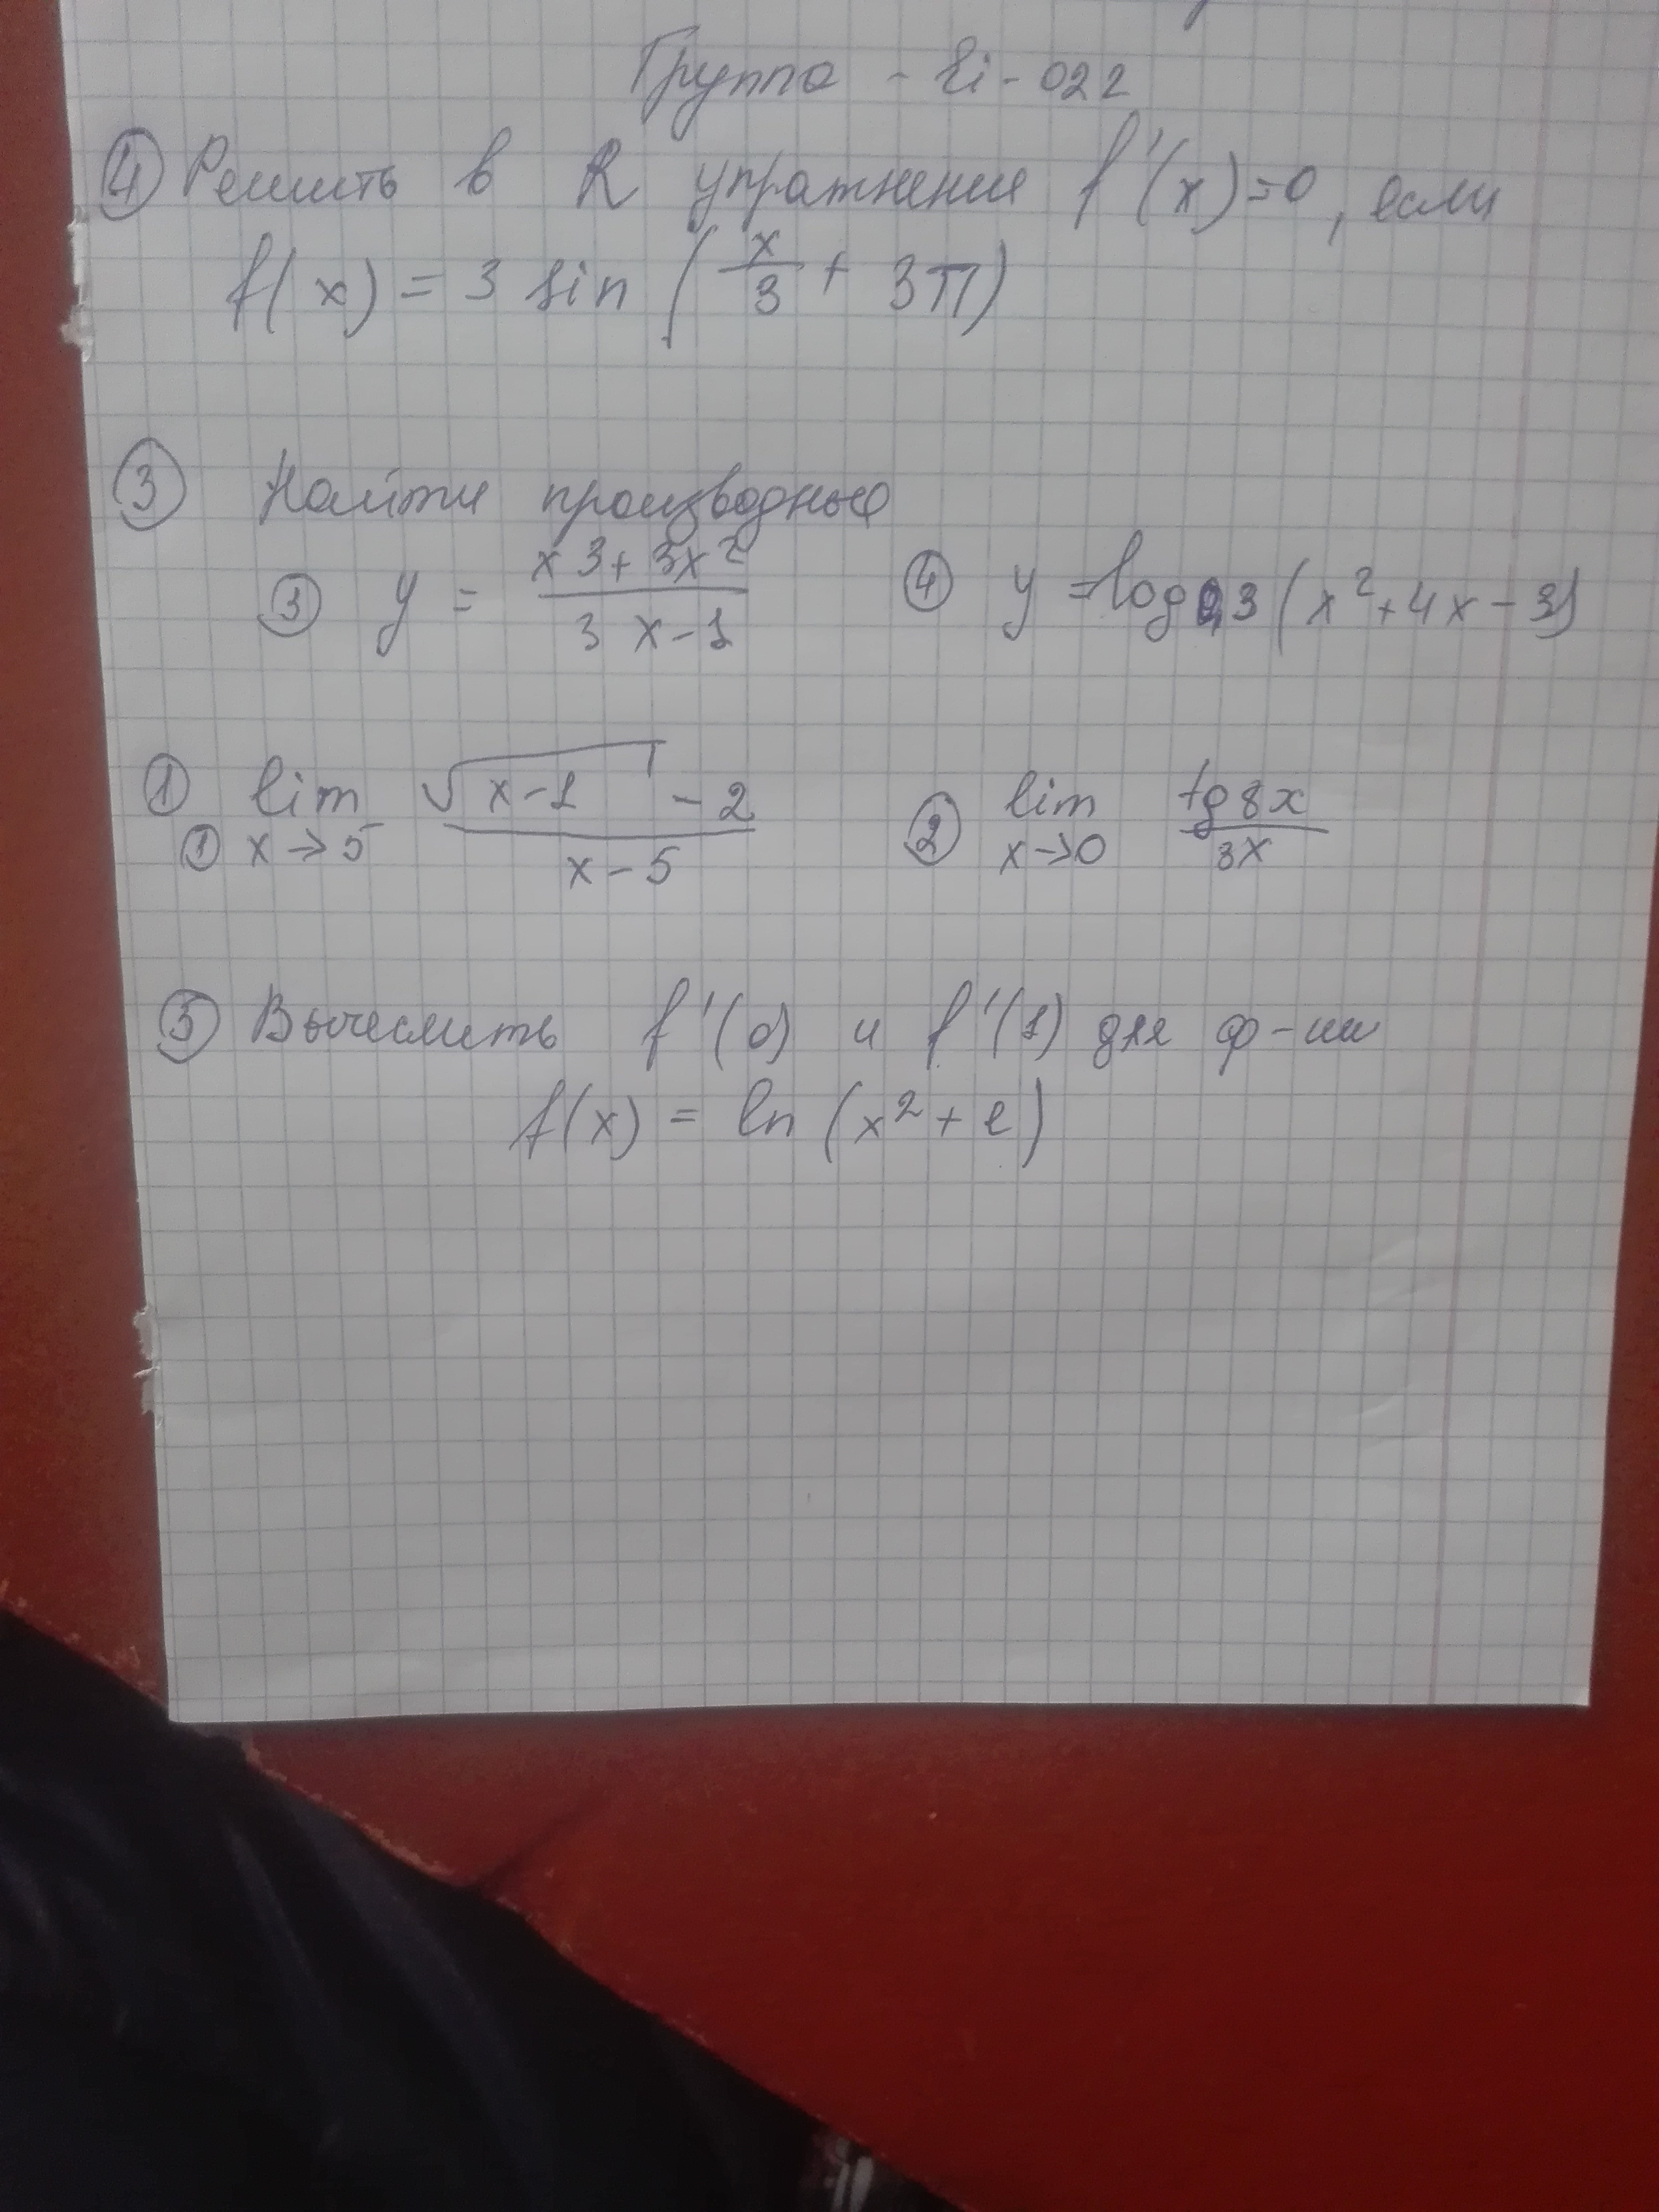 Группа - Ei-022
④ Решить в R упражнения f'(x)=0, если
f(x) = 3 sin (x/3 + 3π)
③ Найти производные
③ y = (x3+3x²)/(3x-1) ④ y = log0,3 (x²+4x-3)
① lim x→5 (√(x-1) - 2)/(x-5) ② lim x→0 tg8x/3x
①
⑤ Вычеслить f'(0) и f'(1) для ф-ии
f(x) = ln (x²+e)